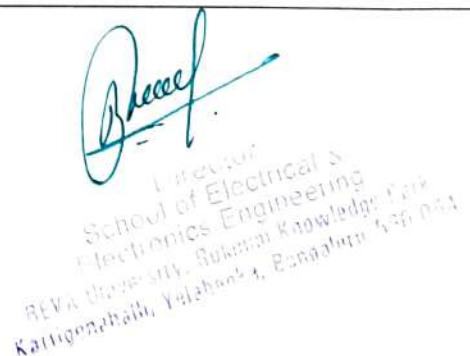 Director
School of Electrical &
Electronics Engineering
REVA University, Rukmini Knowledge Park
Kattigenahalli, Yelahanka, Bangaluru